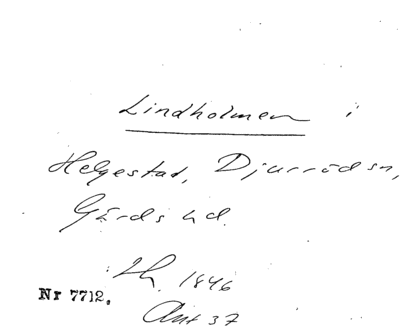 Lindholmen i
Helgestad, Djurröds sn,
Gärds hd.
Lh. 1846
Nr 7712.
Ant 37